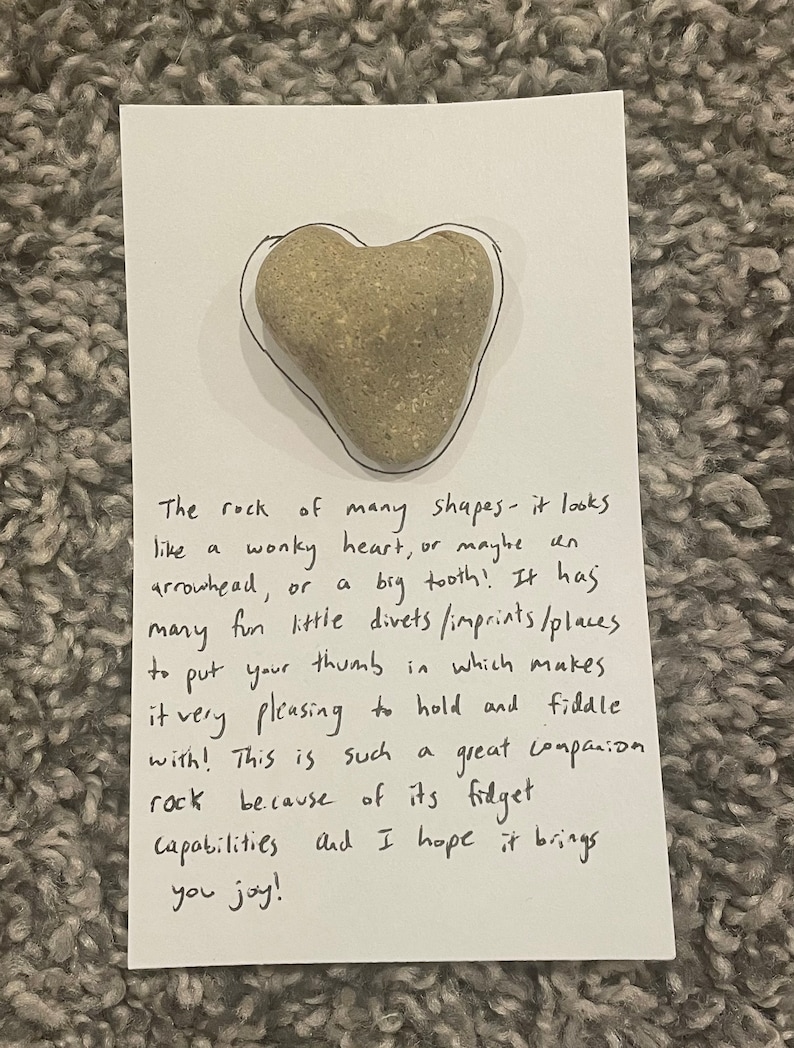 The rock of many shapes- it looks
like a wonky heart, or maybe an
arrowhead, or a big tooth! It has
many fun little divets/imprints/places
to put your thumb in which makes
it very pleasing to hold and fiddle
with! This is such a great companion
rock because of its fidget
capabilities and I hope it brings
you joy!